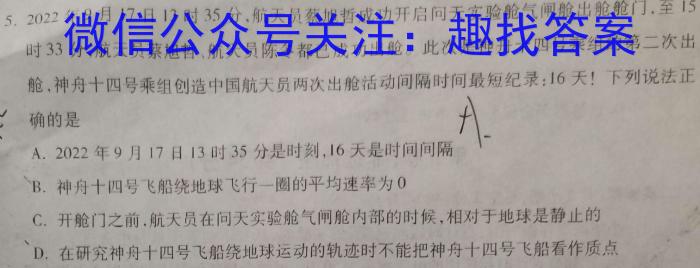 5. 2022年9月17日13时35分,航天员蔡旭哲成功开启问天实验舱气闸舱出舱舱门,至15
时33分,航天员蔡旭哲、航天员陈冬都已成功出舱。此次是神舟十四号乘组的第二次出
微信公众号关注:趣找答案
舱,神舟十四号乘组创造中国航天员两次出舱活动间隔时间最短纪录:16天!下列说法正
确的是
A.
A. 2022年9月17日13时35分是时刻,16天是时间间隔
B. 神舟十四号飞船绕地球飞行一圈的平均速率为0
C. 开舱门之前,航天员在问天实验舱气闸舱内部的时候,相对于地球是静止的
D. 在研究神舟十四号飞船绕地球运动的轨迹时不能把神舟十四号飞船看作质点